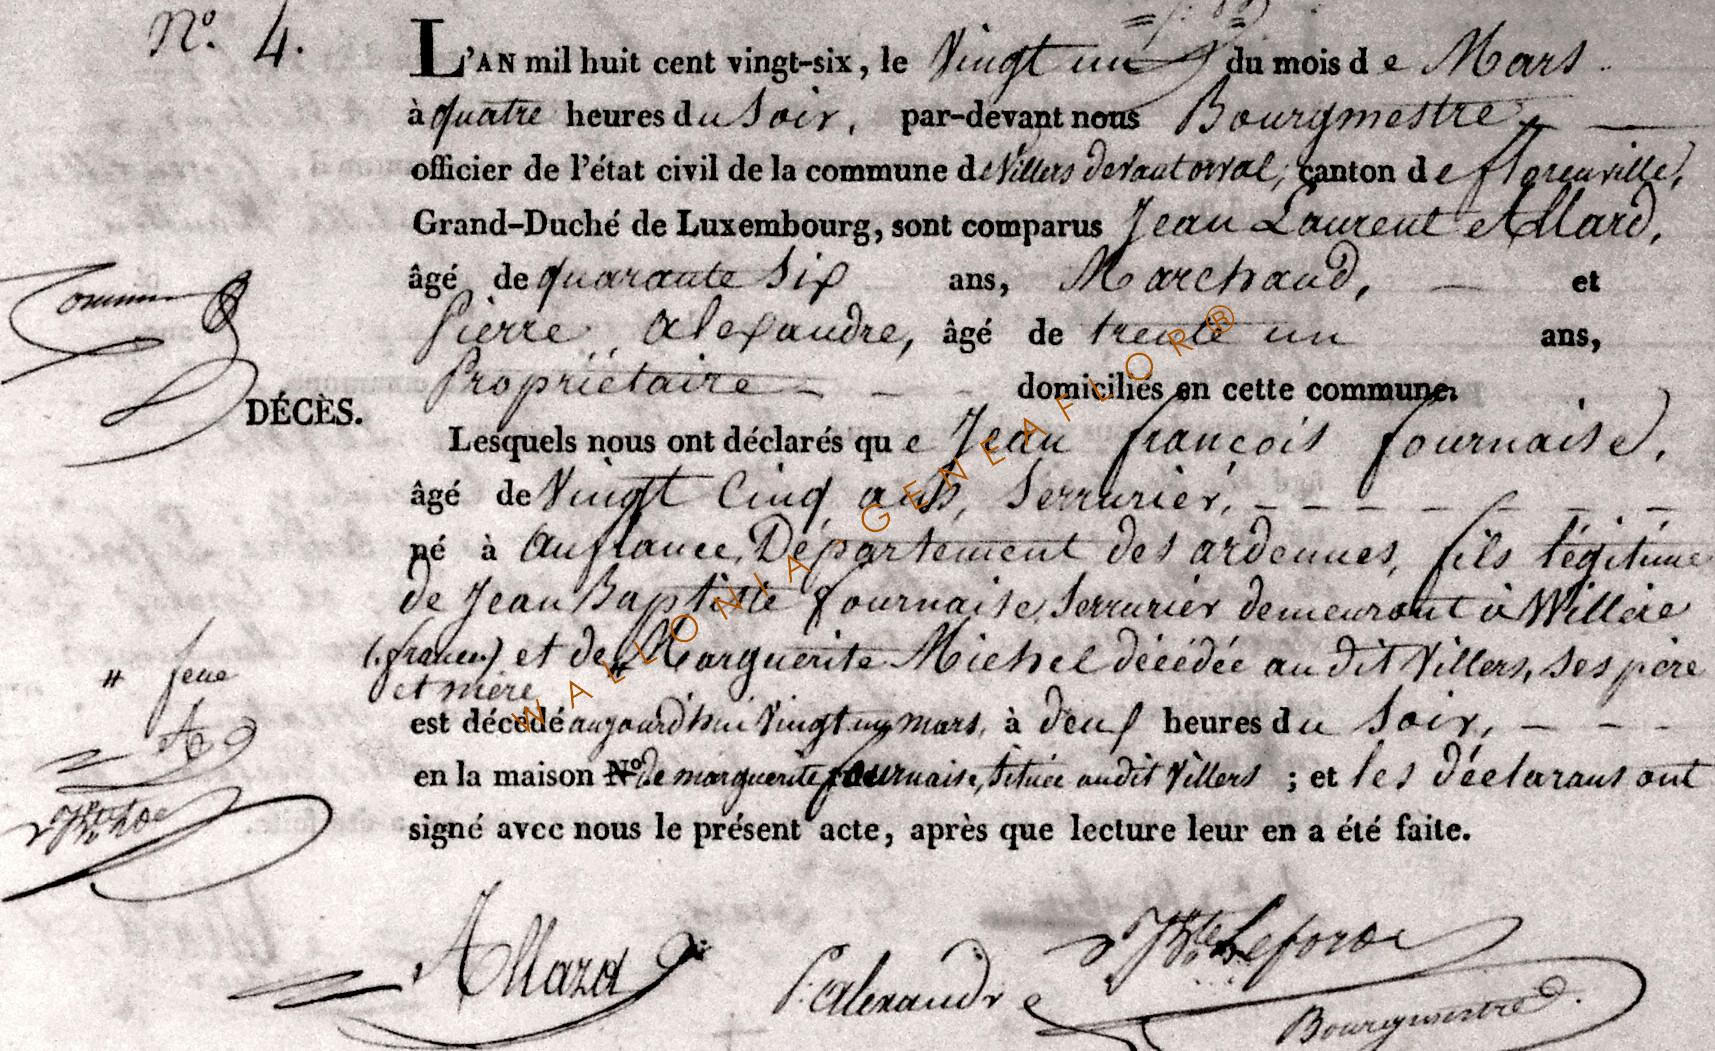 N.o 4.
L'AN mil huit cent vingt-six, le Vingt un du mois d e Mars
à quatre heures du Soir, par-devant nous Bourgmestre
officier de l'état civil de la commune de Villers devant orval, canton d e florenville,
Grand-Duché de Luxembourg, sont comparus Jean Laurent Allard,
âgé de quarante Six ans, Marchand, et
Pierre alexandre, âgé de trente un ans,
Propriétaire domiciliés en cette commune.
DÉCÈS.
Lesquels nous ont déclarés qu e Jean françois fournaise,
âgé de Vingt Cinq ans, Serrurier,
né à en france, Département des ardennes, fils légitime
de Jean Baptiste fournaise, Serrurier demeurant à Williere
(france) et de " Marguerite Michel décédée au dit Villers, ses père
et mère
" feue
est décédé aujourdhui Vingt un mars, à deux heures du Soir,
en la maison N.o de marguerite fournaise, Située audit Villers ; et les déclarans ont
signé avec nous le présent acte, après que lecture leur en a été faite.
Allard
P. Alexandre
Bourgmestre
WALLONIA GENEAFLOR®